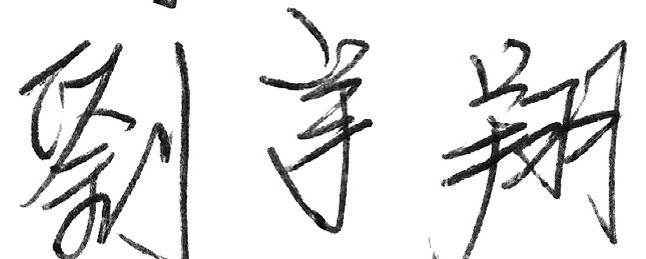 劉宇翔